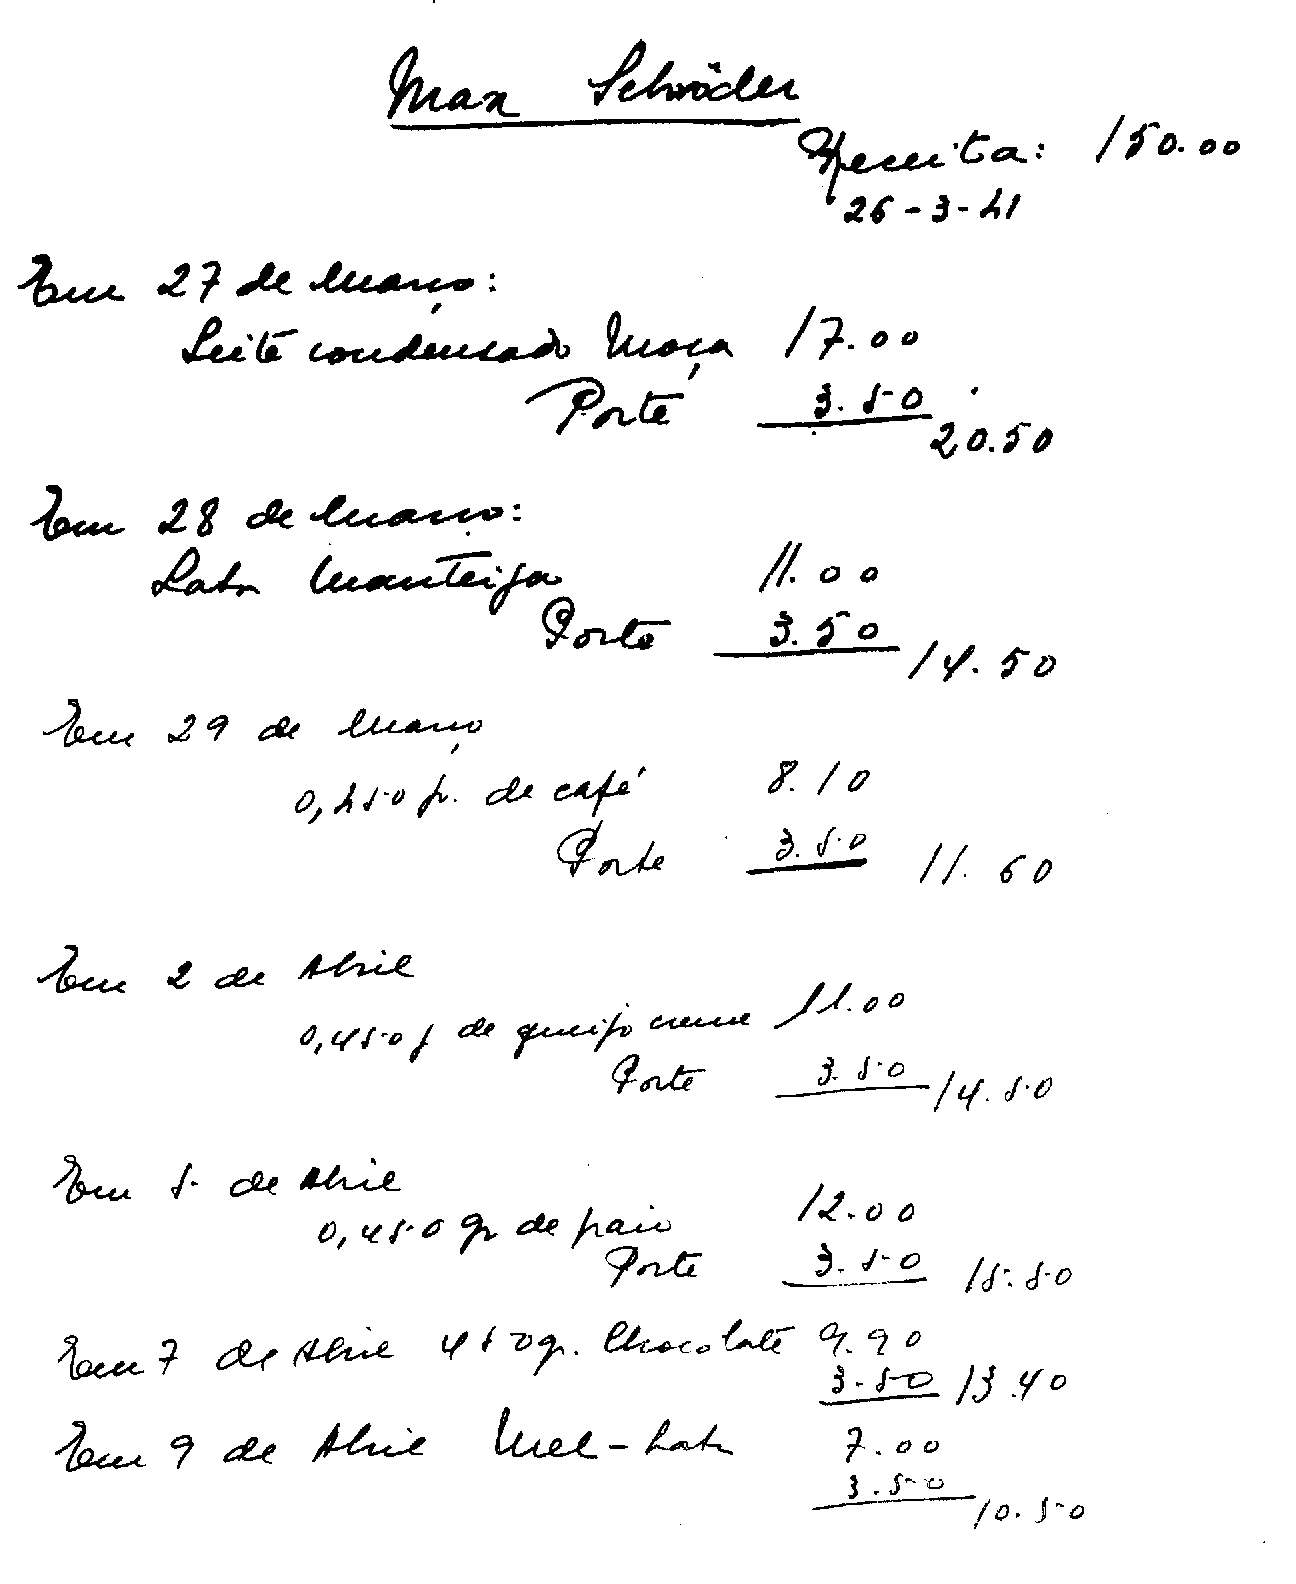 Max Schröder
Receita: 150.00
26-3-41
Em 27 de Março:
Leite condensado Moça 17.00
Porte 3.50
20.50
Em 28 de Março:
Lata Manteiga 11.00
Porte 3.50
14.50
Em 29 de Março
0,450 gr. de café 8.10
Porte 3.50 11.60
Em 2 de Abril
0,450 g de queijo creme 11.00
Porte 3.50 14.50
Em 5 de Abril
0,450 gr de paio 12.00
Porte 3.50 15.50
Em 7 de Abril 450 gr. Chocolate 9.90
3.50 13.40
Em 9 de Abril Mel-Lata 7.00
3.50
10.50